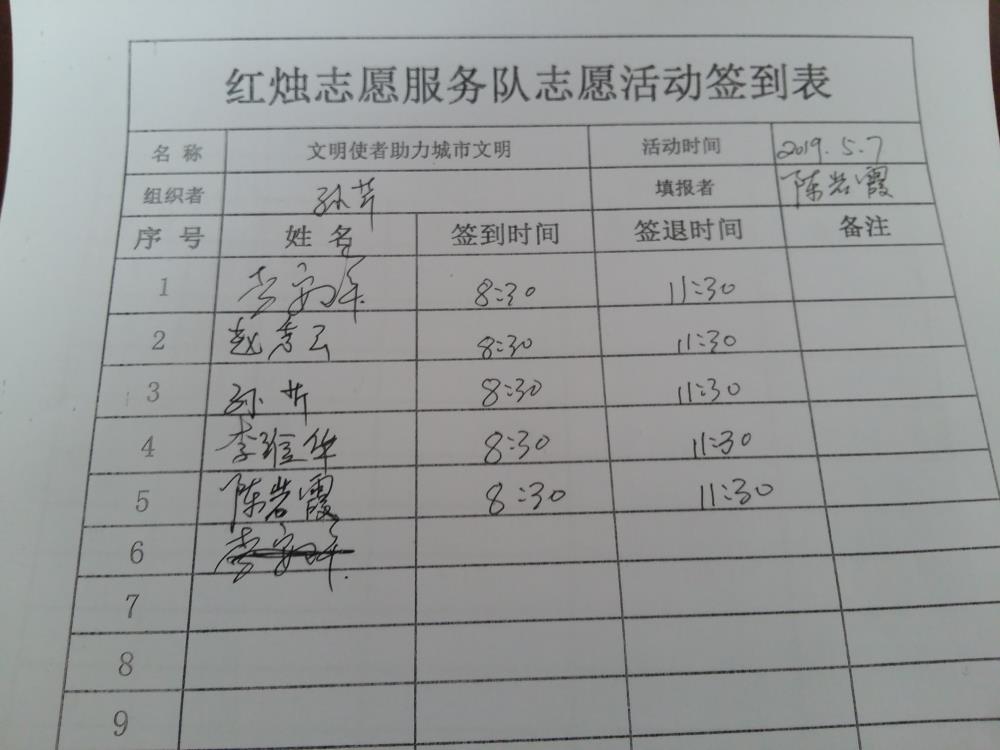 红烛志愿服务队志愿活动签到表
名 称 文明使者助力城市文明 活动时间 2019.5.7
组织者 孙 填报者 陈岩霞
序 号 姓 名 签到时间 签退时间 备注
1 李 8:30 11:30
2 赵 云 8:30 11:30
3 孙 8:30 11:30
4 李维华 8:30 11:30
5 陈岩霞 8:30 11:30
6 李
7
8
9